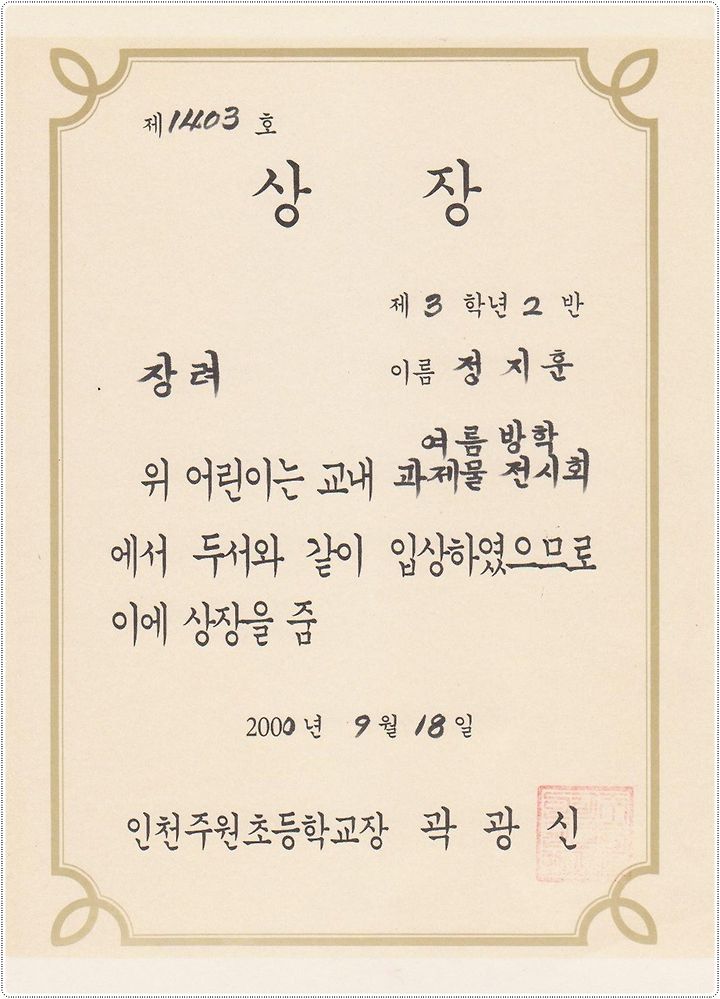 제1403호
상 장
제 3 학년 2 반
장려
이름 정지훈
여름방학
위 어린이는 교내 과제물 전시회
에서 두서와 같이 입상하였으므로
이에 상장을 줌
2000년 9월 18일
인천주원초등학교장 곽광신